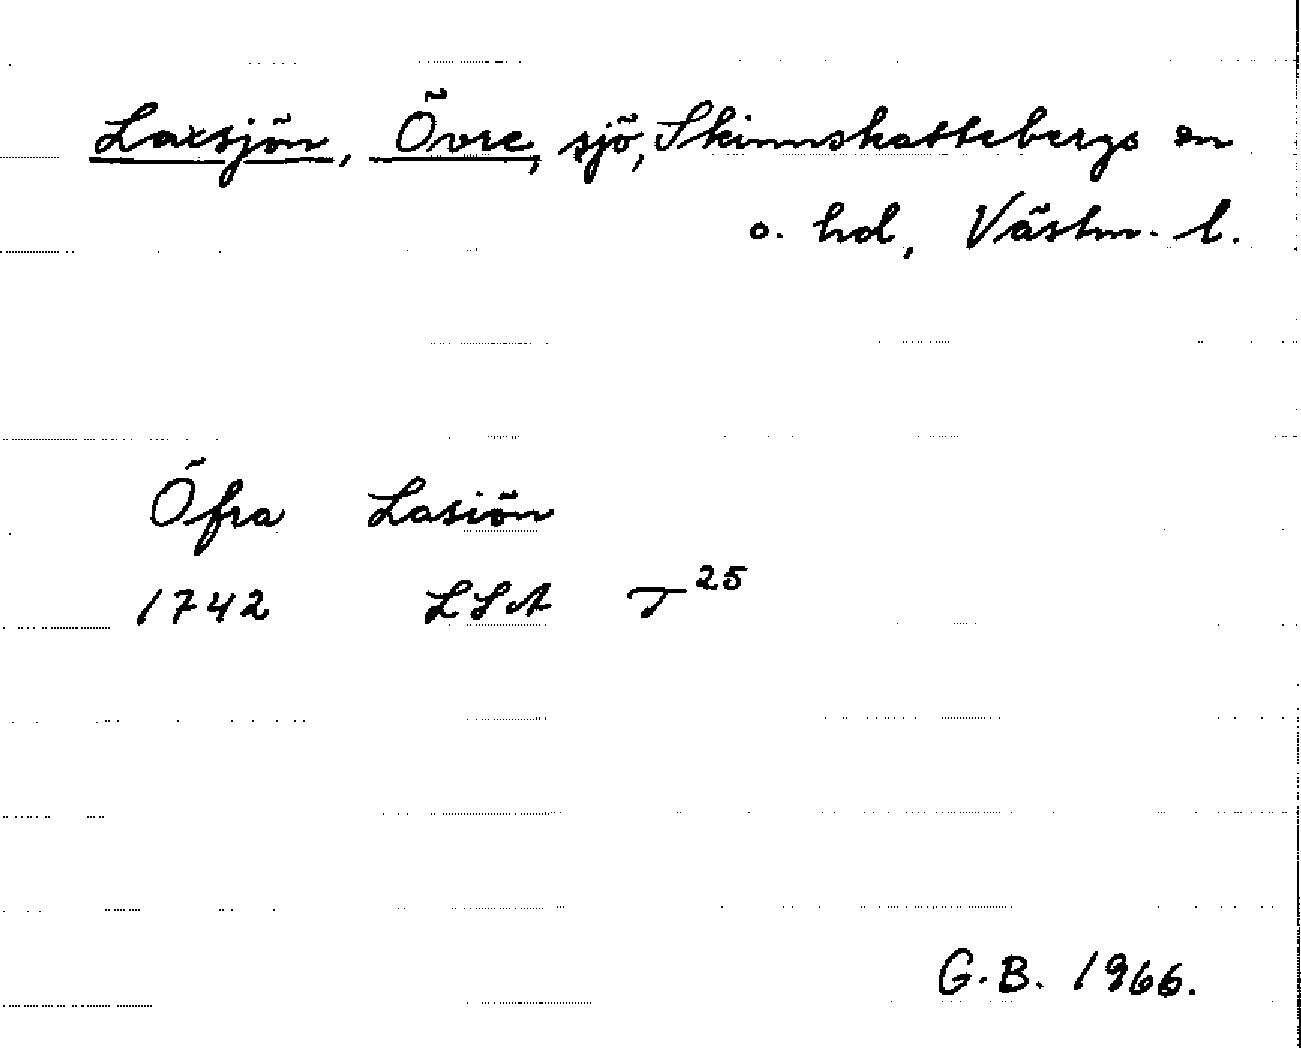 Laxsjön, Övre, sjö, Skinnskattebergs sn
o. hd, Västm. l.
Öfra Lasiön
1742 LSA T25
G.B. 1966.